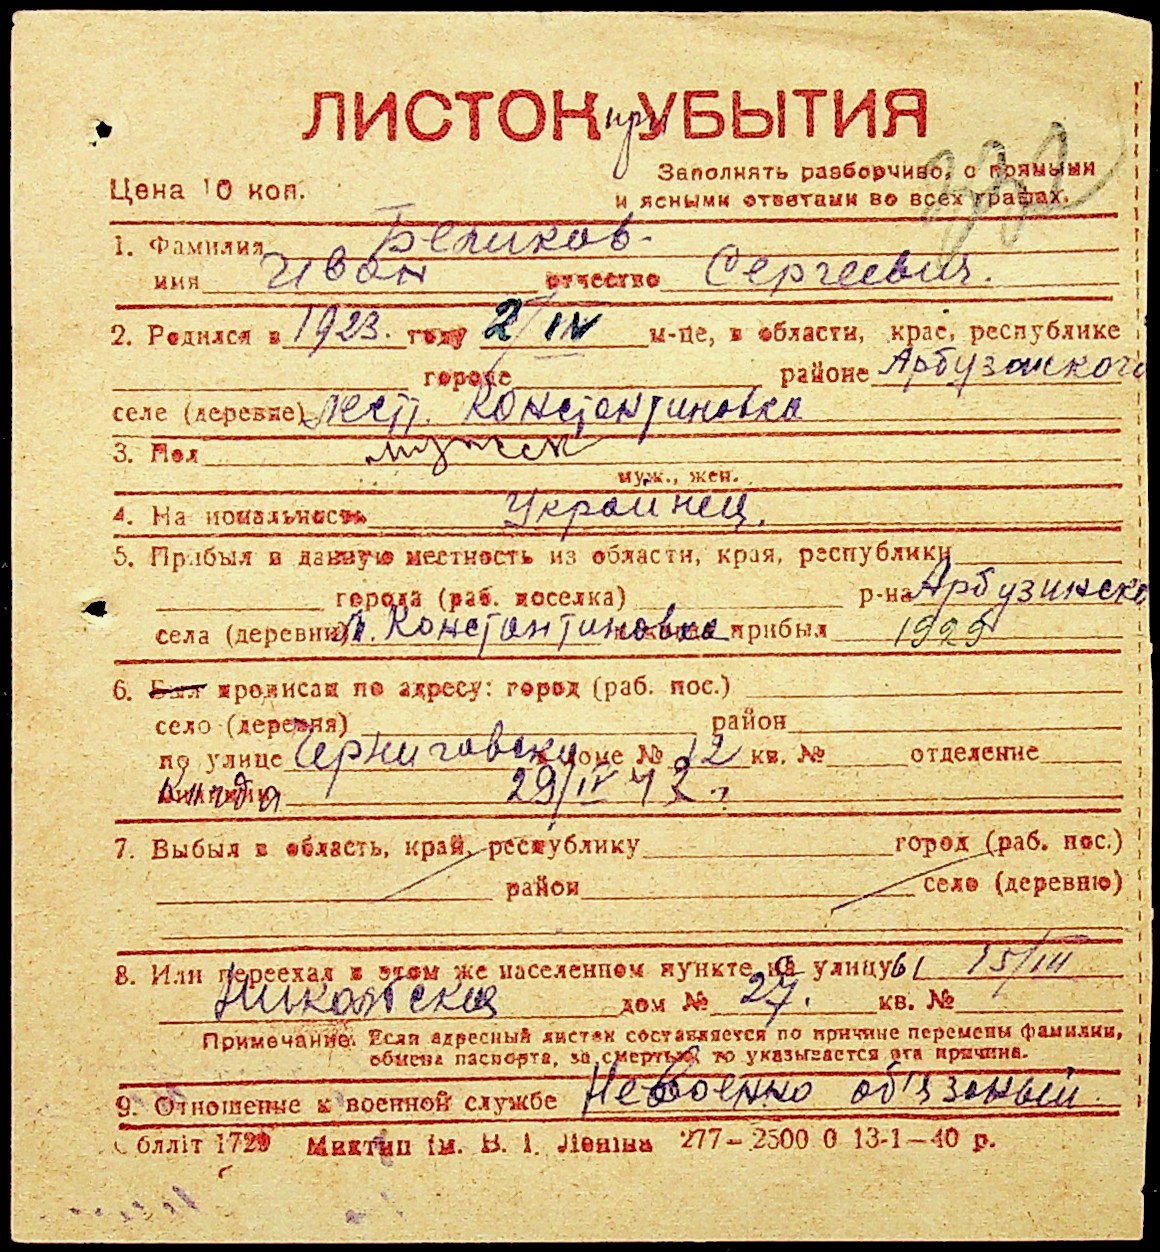 ЛИСТОК при УБЫТИЯ
Цена 10 коп.
Заполнять разборчиво, с прямыми
и ясными ответами во всех графах.
1. Фамилия Беликов
имя Иван отчество Сергеевич.
2. Родился в 1923. году 2/IV м-це, в области, крае, республике
городе районе Арбузонского
селе (деревне) Константиновка
3. Пол мужск
муж., жен.
4. Национальность Украинец.
5. Прибыл в данную местность из области, края, республики
города (раб. поселка) р-на Арбузинско
села (деревни) п. Константиновка прибыл 1929
6. Был прописан по адресу: город (раб. пос.)
село (деревня) район
по улице Черниговска доме № 12 кв. № отделение
когда 29/IV 42.
7. Выбыл в область, край, республику город (раб. пос.)
район село (деревню)
8. Или переехал в этом же населенном пункте на улицу 15/III
Никольская дом № 29. кв. №
Примечание. Если адресный листок составляется по причине перемены фамилии,
обмена паспорта, за смертью то указывается эта причина.
9. Отношение к военной службе Невоенно об'язоный
Облліт 1729 Миктип ім. В. І. Леніна 277–2500 0 13-1–40 р.